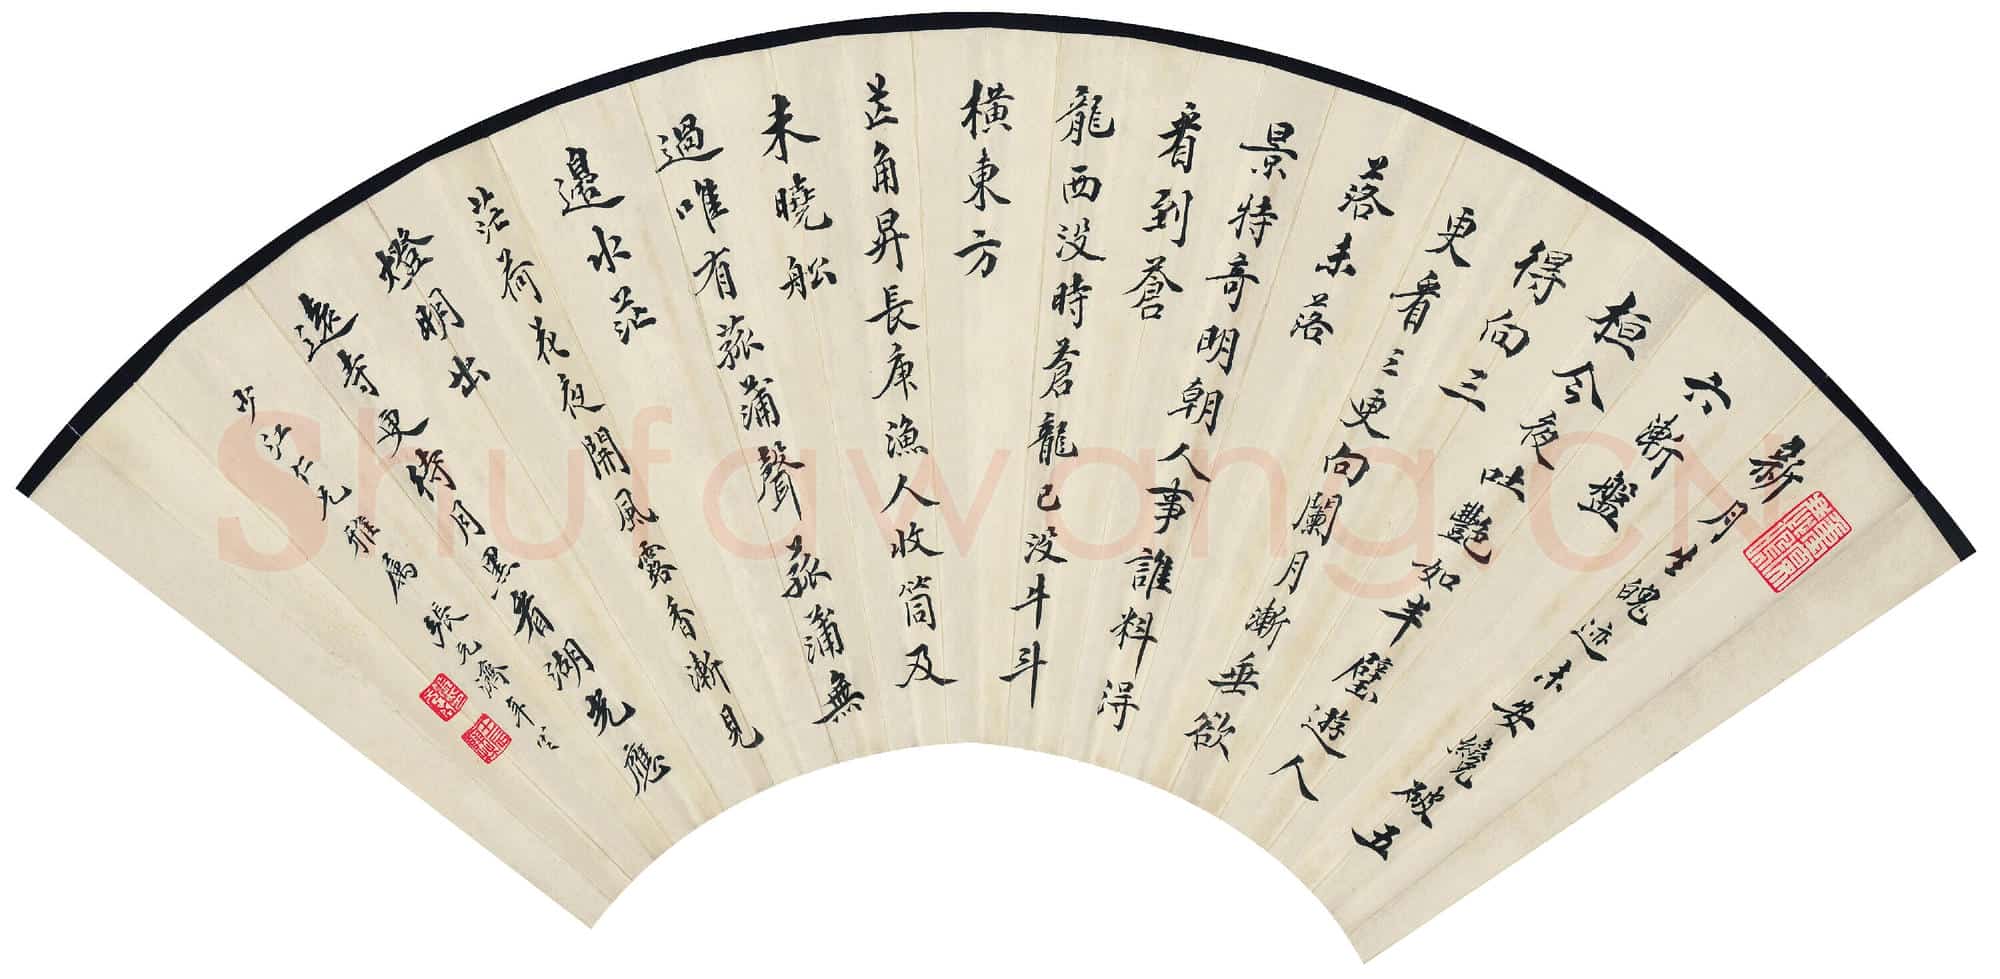 新月生魄迹未安纔破五
六漸盤
桓今夜吐艷如半璧遊人
得向三
更看三更向闌月漸垂欲
落未落
景特奇明朝人事誰料得
看到蒼
龍西没時蒼龍已没牛斗
橫東方
芒角昇長庚漁人收筒及
未曉船
過唯有菰蒲聲菰蒲無
邊水茫
茫荷花夜開風露香漸見
燈明出
遠寺更待月黑看湖光應
江仁兄雅屬 張元濟
Shufawang.CN